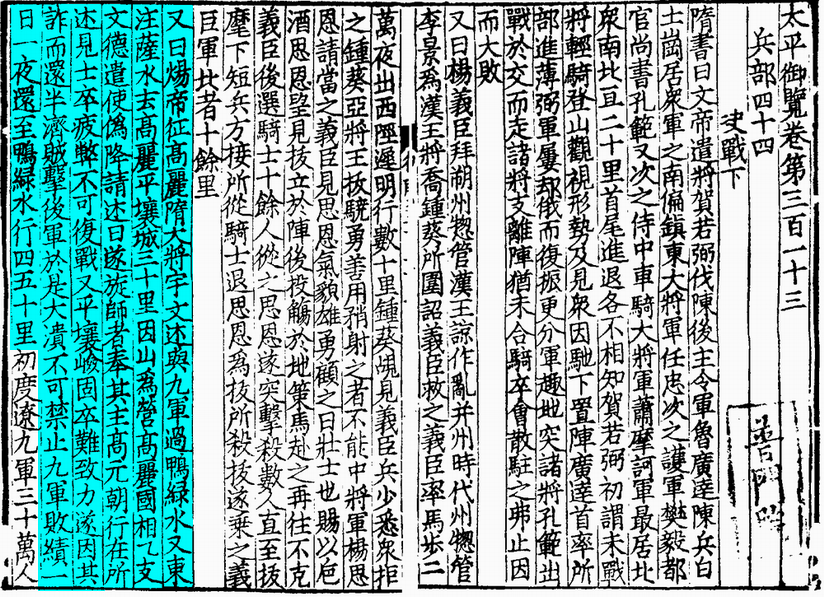 太平御覽卷第三百一十三
兵部四十四
決戰下
隋書曰文帝遣將賀若弼伐陳後主令軍魯廣逹陳兵白
土崗居衆軍之南偏鎮東大將軍任忠次之護軍樊毅都
官尚書孔範又次之侍中車騎大將軍蕭摩訶軍最居北
衆南北亘二十里首尾進退各不相知賀若弼初謂未戰
將輕騎登山觀視形勢及見衆因馳下置陣廣逹首率所
部進薄弼軍屢却俄而復振更分軍趣北突諸將孔範出
戰於交而走諸將支離陣猶未合騎卒會散駐之弗止因
而大敗
又曰楊義臣拜朔州惣管漢王諒作亂并州時代州惣管
李景爲漢王將喬鍾葵所圍詔義臣救之義臣率馬步二
萬夜出西陘遲明行數十里鍾葵覘見義臣兵少悉衆拒
之鍾葵亞將王拔驍勇善用矟射之者不能中將軍楊思
恩請當之義臣見思恩氣貌雄勇顧之曰壯士也賜以卮
酒思恩望見拔立於陣後投觴於地策馬赴之再往不克
義臣後選騎士十餘人從之思恩遂突擊殺數人直至拔
麾下短兵方接所從騎士退思恩爲拔所殺拔遂乘之義
臣軍北者十餘里
又曰煬帝征高麗隋大將宇文述與九軍過鴨綠水又東
注薩水去高麗平壤城三十里因山爲營高麗國相乙支
文德遣使僞降請述曰遂旋師者奉其主高元朝行在所
述見士卒疲弊不可復戰又平壤嶮固卒難致力遂因其
詐而還半濟賊擊後軍於是大潰不可禁止九軍敗績一
日一夜還至鴨綠水行四五十里初度遼九軍三十萬人